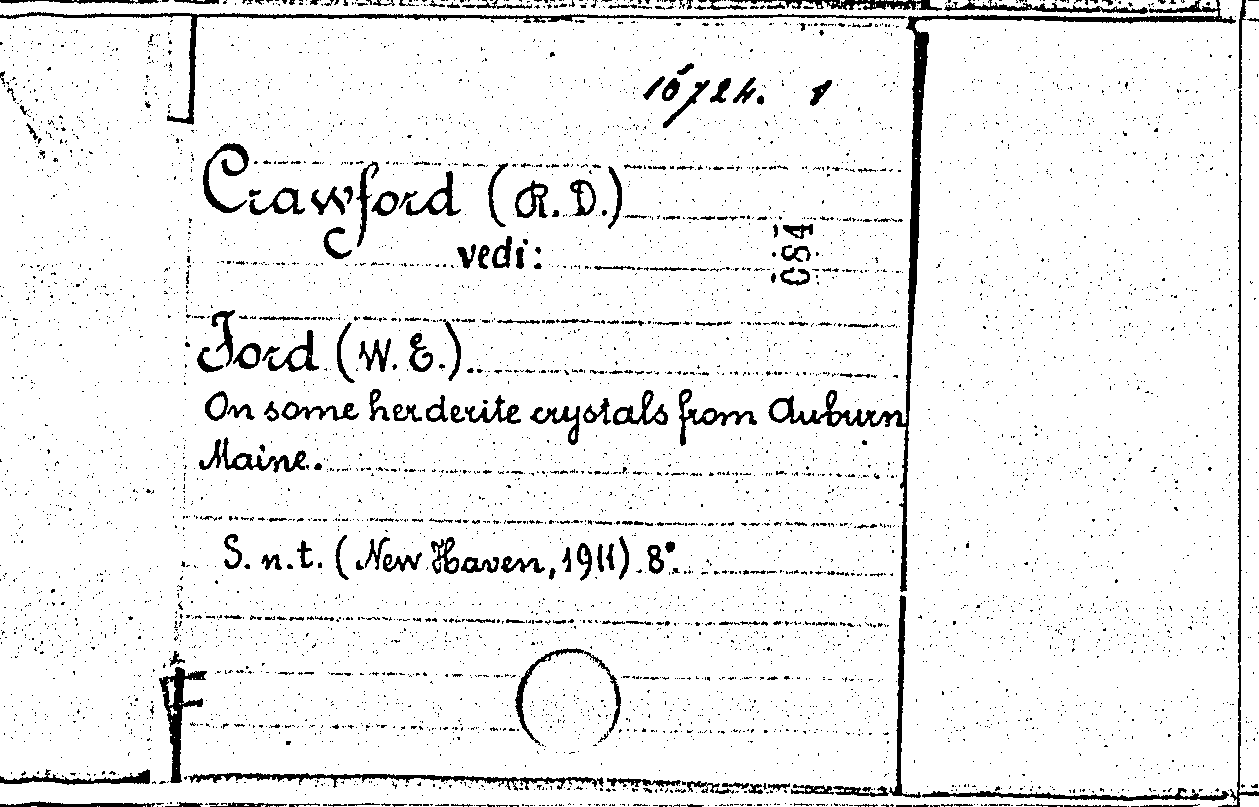 15724. 1
Crawford (R. D.)
vedi:
CS4
Ford (W. E.).
On some herderite crystals from Auburn
Maine.
S. n. t. (New Haven, 1911) 8°.